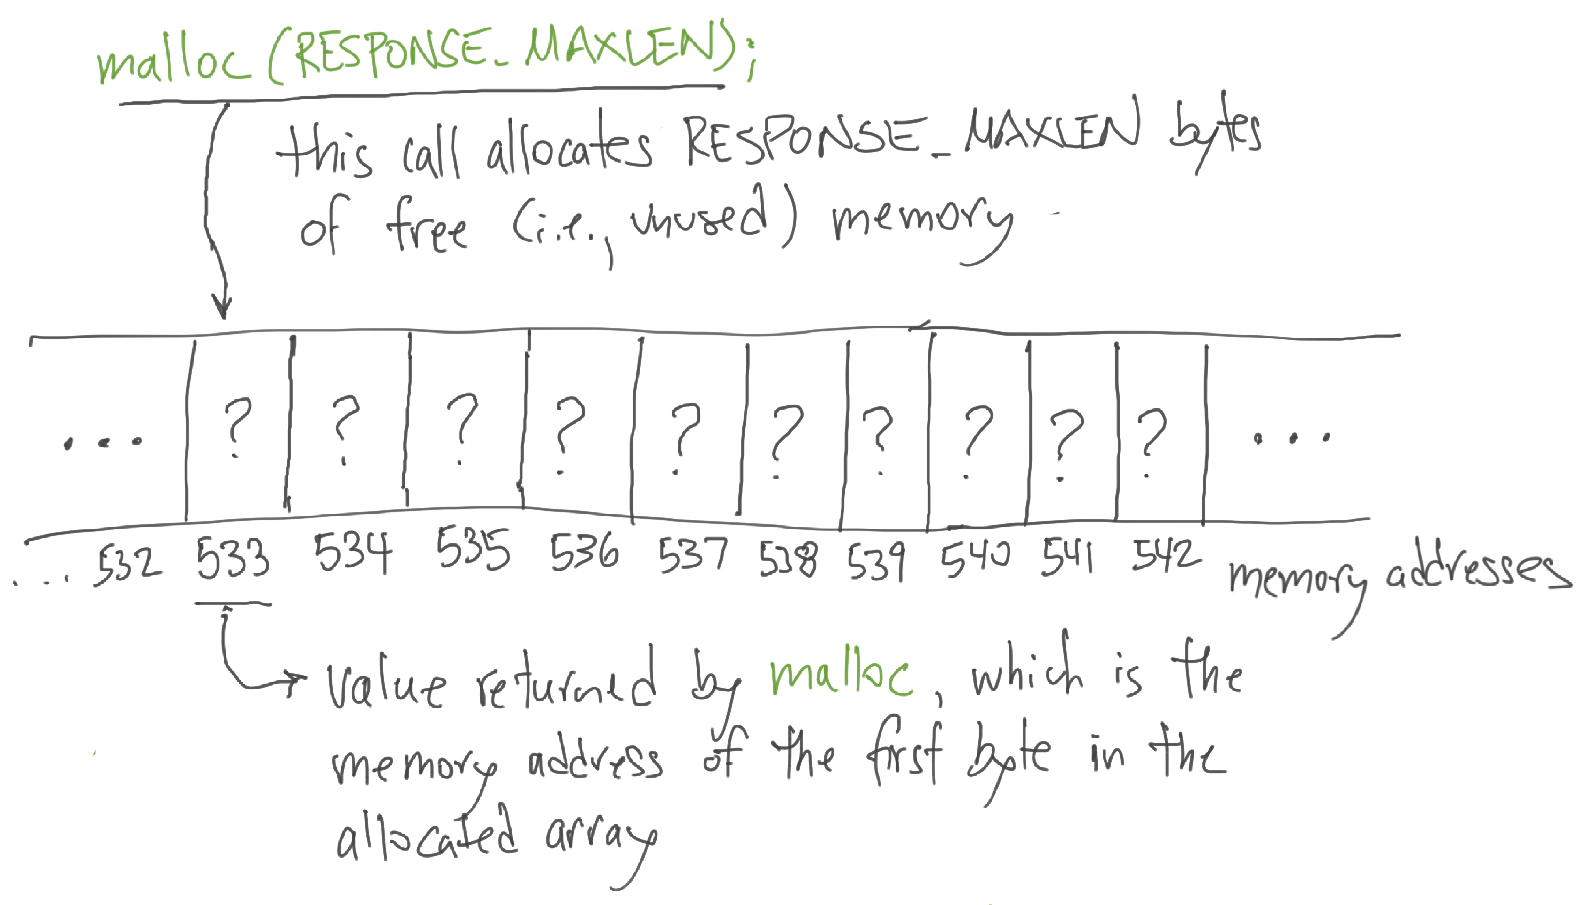 malloc (RESPONSE_MAXLEN);
this call allocates RESPONSE_MAXLEN bytes
of free (i.e., unused) memory
... ? ? ? ? ? ? ? ? ? ? ...
... 532 533 534 535 536 537 538 539 540 541 542 memory addresses
value returned by malloc, which is the
memory address of the first byte in the
allocated array